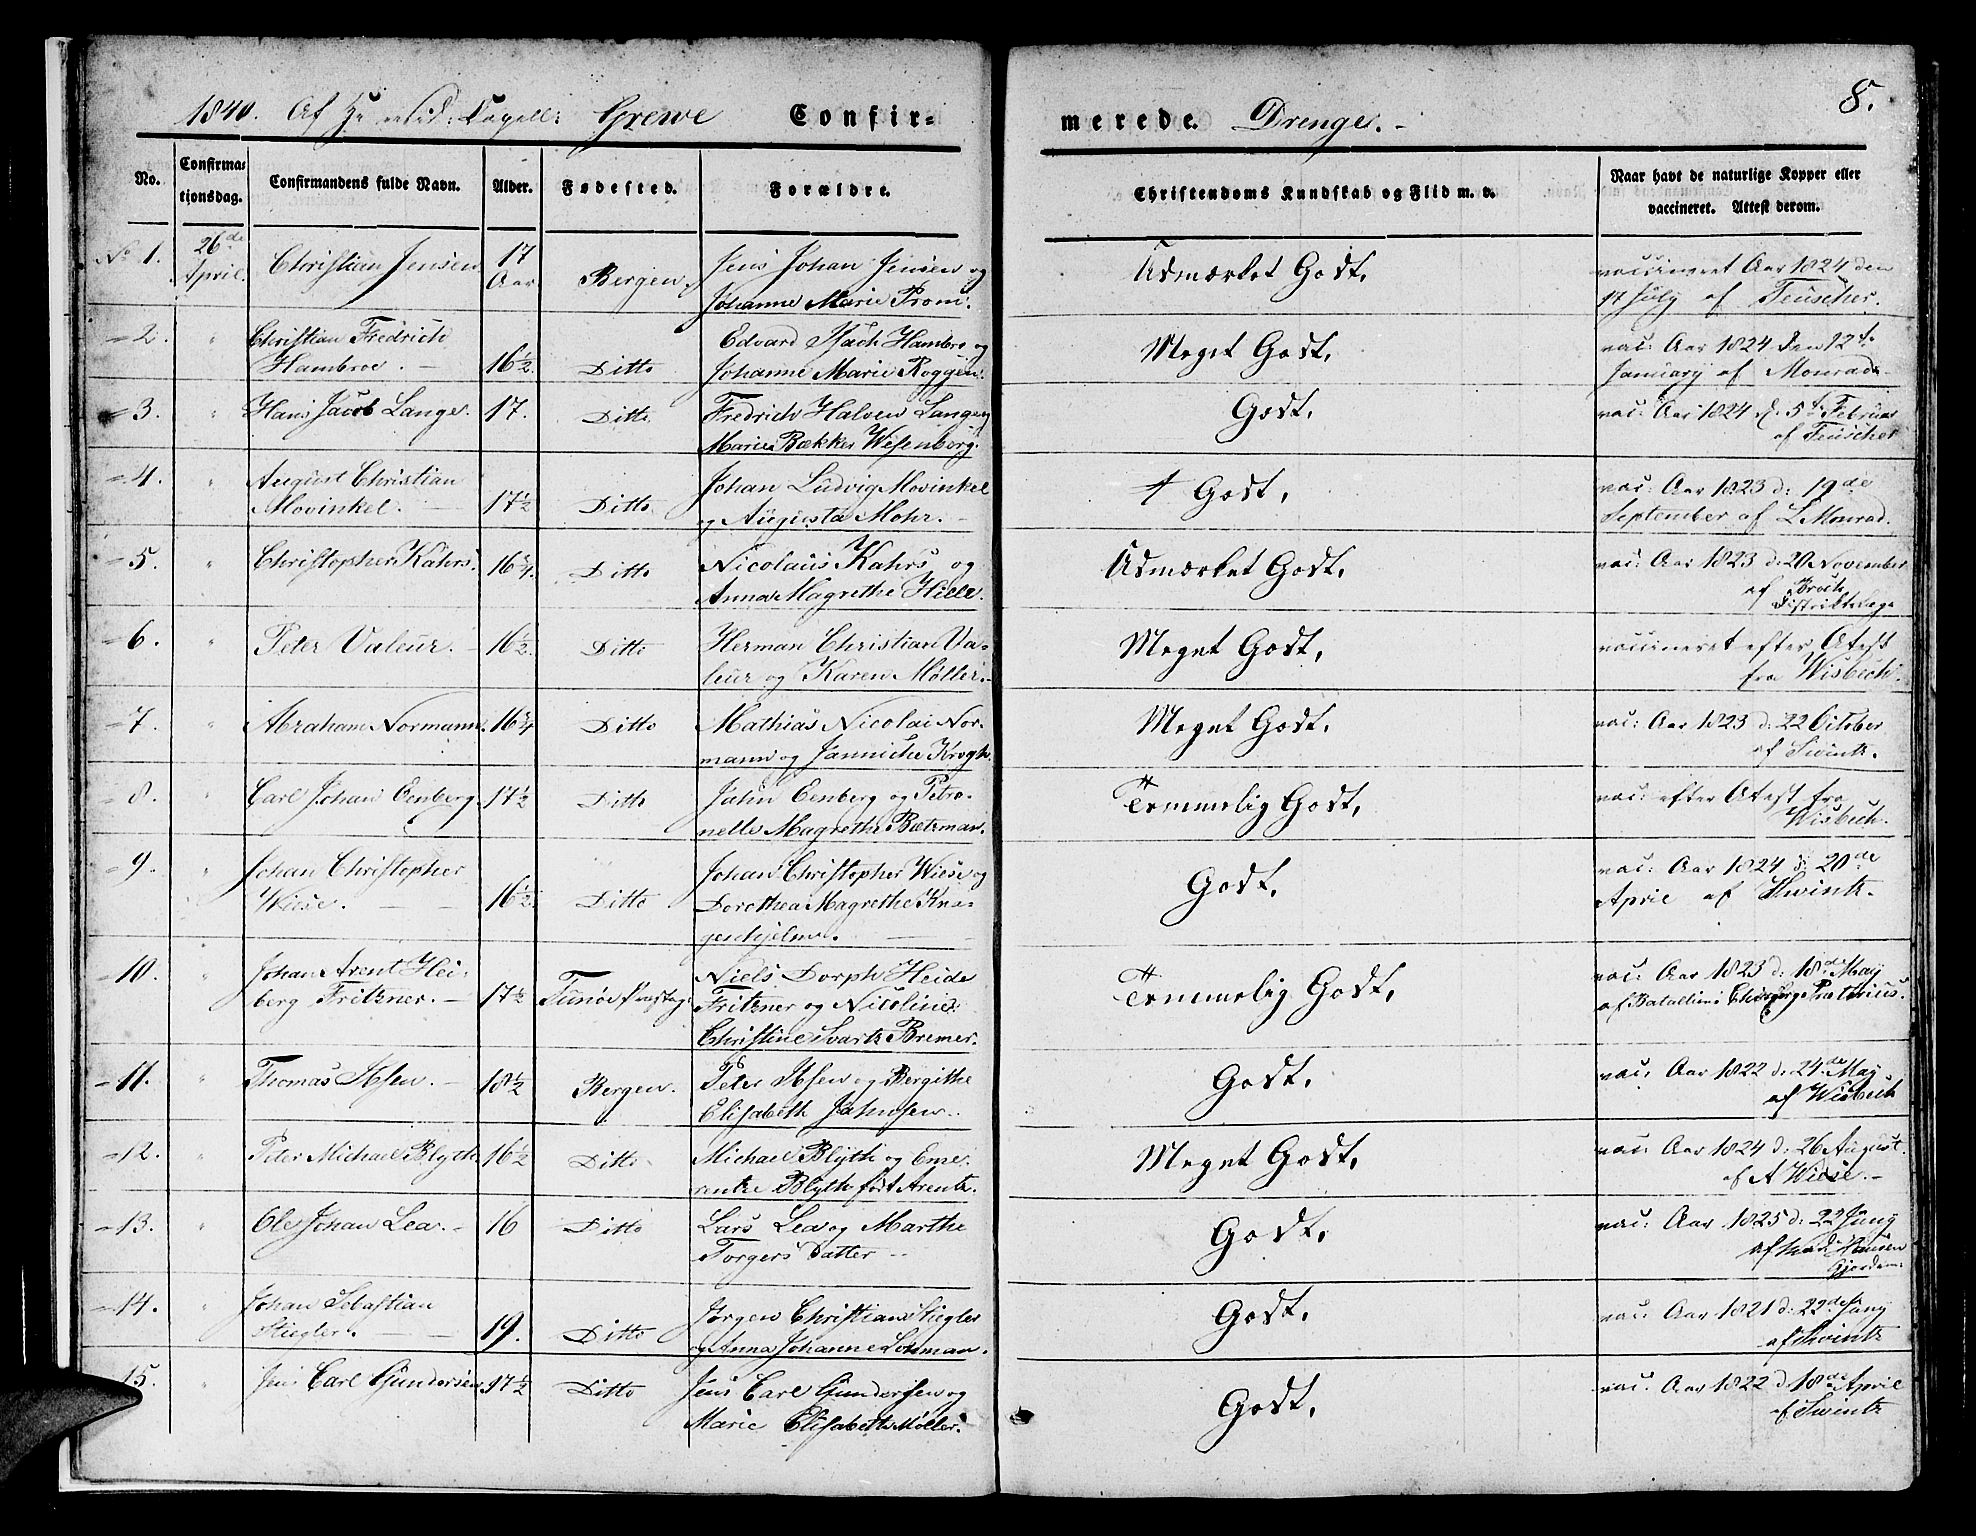 1840. Af Hr Grewe Confir-
merede. Drenge. 8.
No. Confirmationsdag. Confirmandens fulde Navn. Alder. Fødested. Forældre. Christendoms Kundskab og Flid m. v. Naar havt de naturlige Kopper eller vaccineret. Attest derom.
No 1. 26de April. Christian Jensen. 17 Aar Bergen. Jens Johan Jensen og Johanne Marie Prom. Udmærket Godt. vaccineret Aar 1824 den 17 July af Teuscher.
2. " Christian Fredrich Hambroe. 16½ Ditto Edvard Isach Hambro og Johanne Marie Roggen. Meget Godt. vac: Aar 1824 den 12te January af Monrad
3. " Hans Jacob Lange. 17. Ditto Fredrich Halven Lange og Marie Bækker Wesenberg. Godt. vac: Aar 1824 d. 5te Februar af Teuscher
4. " August Christian Movinkel. 17½ Ditto Johan Ludvig Movinkel og Augusta Mohr. Godt. vac: Aar 1823 d: 19de September af L Monrad.
5. " Christopher Kahrs. 16¾ Ditto Nicolaus Kahrs og Anna Magrethe Hille. Udmærket Godt. vac: Aar 1823 d: 20 November af Distriktslæge
6. " Peter Valeur. 16½ Ditto Herman Christian Valeur og Karen Møller. Meget Godt. vaccineret efter Atest fra Wisbech.
7. " Abraham Normann. 16¾ Ditto Mathias Nicolai Normann og Jannicke Krogh. Meget Godt. vac: Aar 1823 d: 22 October af Swink.
8. " Carl Johan Eenberg. 17½ Ditto Jahn Eenberg og Petronelle Magrethe Bætzman. Temmelig Godt. vac: efter Atest fra Wisbech.
9. " Johan Christopher Wiese. 16½ Ditto Johan Christopher Wiese og Dorothea Magrethe Knageschjelm. Godt. vac: Aar 1824 d 20de April af Swink.
10. " Johan Arent Heiberg Fritzner. 17½ Niels Dorph Heide Fritzner og Nicoline Christine Svartz Bremer. Temmelig Godt. vac: Aar 1823 d: 18de May af Batallions Chirurg Prætorius.
11. " Thomas Ibsen. 18½ Bergen. Peter Ibsen og Bergithe Elisabeth Jahnsen. Godt. vac. Aar 1822 d: 24de May af Wisbech
12. " Peter Michael Blyth 16½ Ditto Michael Blyth og Emerentze Blyth født Arentz. Meget Godt. vac: Aar 1824 d: 26 August. af A Wiese.
13. " Ole Johan Lea. 16 Ditto Lars Lea og Marthe Torgers Datter Godt. vac: Aar 1825 d: 22 Juny af Hansen
14. " Johan Sebastian Stiegler. 19. Ditto Jørgen Christian Stiegler og Anna Johanne Lohman. Godt. vac: Aar 1821 d: 22de Juny af Swink
15. " Jens Carl Gundersen 17½ Ditto Jens Carl Gundersen og Marie Elisabeth Møller. Godt. vac: Aar 1822 d 18de April af Swink